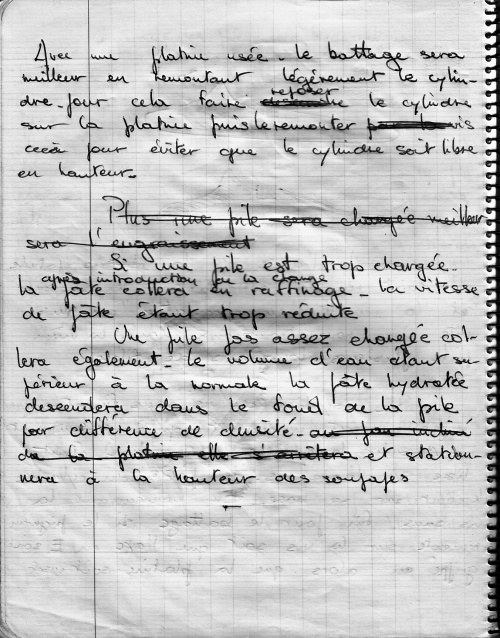 Avec une platine usée. le battage sera
meilleur en remontant légèrement le cylin-
dre. Pour cela faire reposer le cylindre
sur la platine puis le remonter vis
ceci pour éviter que le cylindre soit libre
en hauteur.
Plus une pile sera chargée meilleur
sera l'engraissement
Si une pile est trop chargée.
après introduction de la charge
la pâte collera en raffinage. La vitesse
de pâte étant trop réduite
Une pile pas assez chargée col-
lera également. le volume d'eau étant su-
périeur à la normale la pâte hydratée
descendera dans le fond de la pile
par différence de densité. au plan incliné
de la platine elle s'arrêtera et station-
nera à la hauteur des soupapes